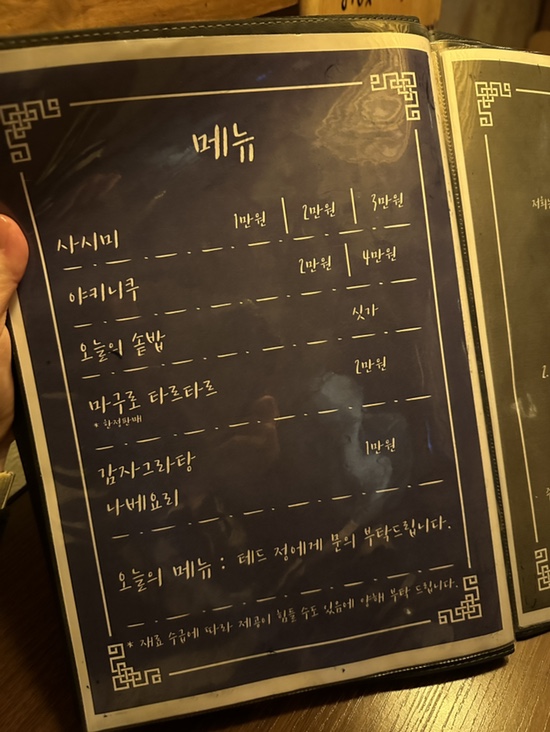 메뉴
사시미 1만원 | 2만원 | 3만원
야키니쿠 2만원 | 4만원
오늘의 솥밥 싯가
마구로 타르타르 2만원
* 한정판매
감자그라탕 1만원
나베요리
오늘의 메뉴 : 테드 정에게 문의 부탁드립니다.
* 재료 수급에 따라 제공이 힘들 수도 있음에 양해 부탁 드립니다.
저희는
2.